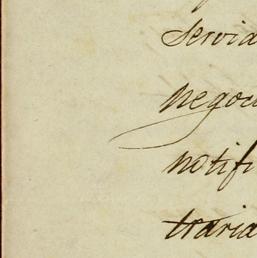 servid
negoci
notifi
traria